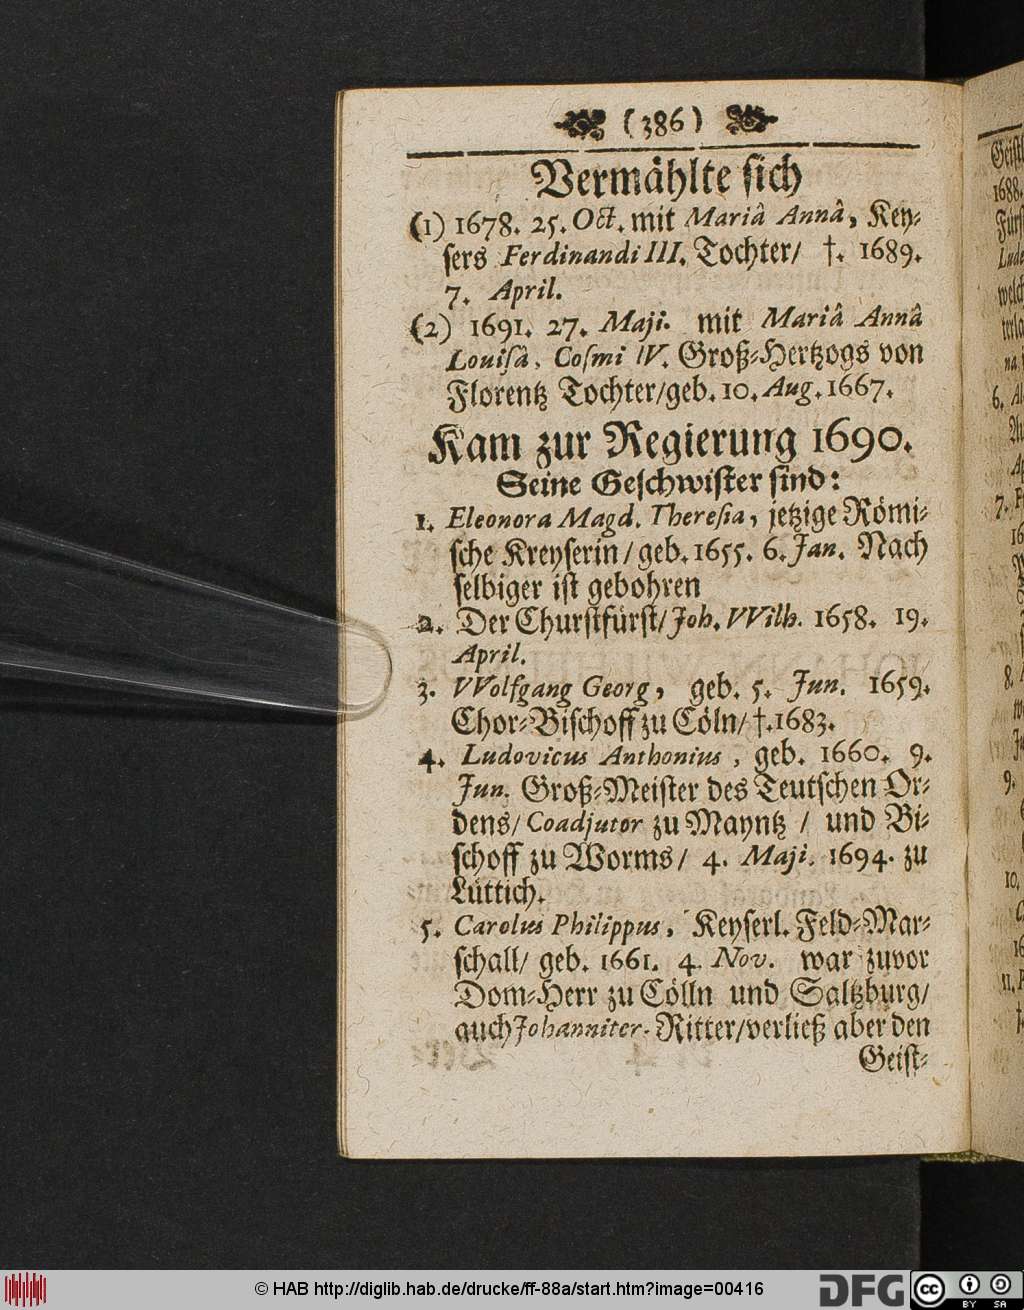 (386)
Vermählte sich
(1) 1678. 25. Oct. mit Mariâ Annâ, Key-
sers Ferdinandi III. Tochter/ †. 1689.
7. April.
(2) 1691. 27. Maji. mit Mariâ Annâ
Louisâ, Cosmi IV. Groß-Hertzogs von
Florentz Tochter/geb. 10. Aug. 1667.
Kam zur Regierung 1690.
Seine Geschwister sind:
1. Eleonora Magd. Theresia, jetzige Römi-
sche Kreyserin/geb. 1655. 6. Jan. Nach
selbiger ist gebohren
2. Der Churstfürst/Joh. VVilh. 1658. 19.
April.
3. VVolfgang Georg, geb. 5. Jun. 1659.
Chor-Bischoff zu Cöln/ †. 1683.
4. Ludovicus Anthonius, geb. 1660. 9.
Jun. Groß-Meister des Teutschen Or-
dens/ Coadjutor zu Mayntz / und Bi-
schoff zu Worms/ 4. Maji. 1694. zu
Lüttich.
5. Carolus Philippus, Keyserl. Feld-Mar-
schall/ geb. 1661. 4. Nov. war zuvor
Dom-Herr zu Cölln und Saltzburg/
auch Johanniter-Ritter/verließ aber den
Geist-
Geistl
1688.
Fürs
Lude
welch
na
6. Al
7. P
16
8.
9.
10.
16
11.
© HAB http://diglib.hab.de/drucke/ff-88a/start.htm?image=00416
DFG
cc
BY SA